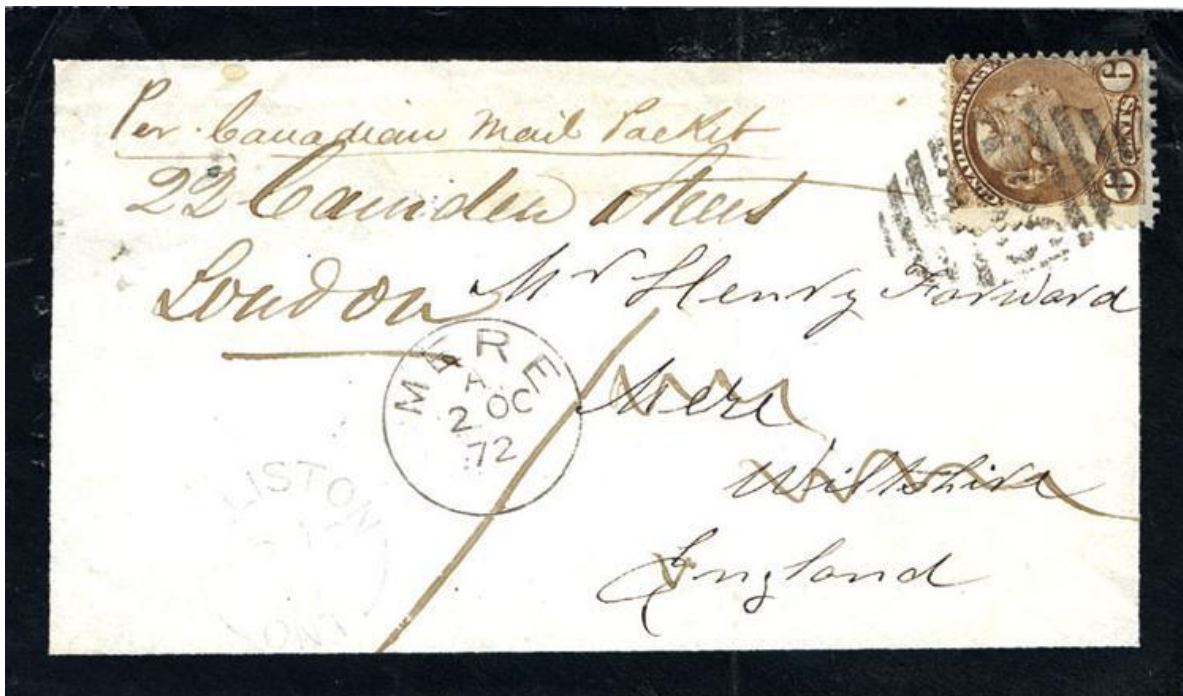 Per Canadian Mail Packet
22 Camden Street
London
Mr Henry Forward
Mere
Wiltshire
England
MERE
A
2 OC
72
LISTON
ONT
CANADA POSTAGE
6 CENTS 6